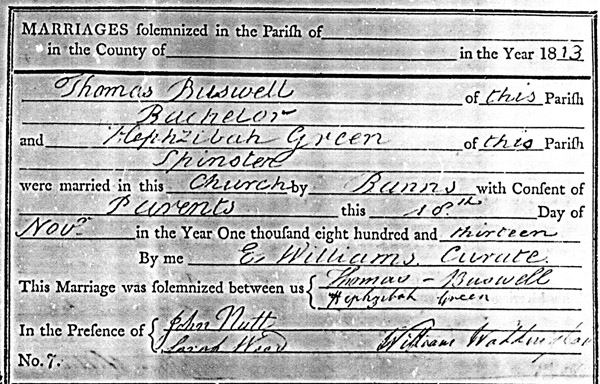 MARRIAGES ſolemnized in the Pariſh of
in the County of in the Year 1813
Thomas Buswell of this Pariſh
Bachelor
and Hephzibah Green of this Pariſh
Spinster
were married in this Church by Banns with Conſent of
Parents this 18th Day of
Novr in the Year One thouſand eight hundred and thirteen
By me E. Williams Curate.
This Marriage was ſolemnized between us { Thomas - Buswell
Hephzibah Green
In the Preſence of { John Nutt
Sarah Wood William Waddington
No. 7.